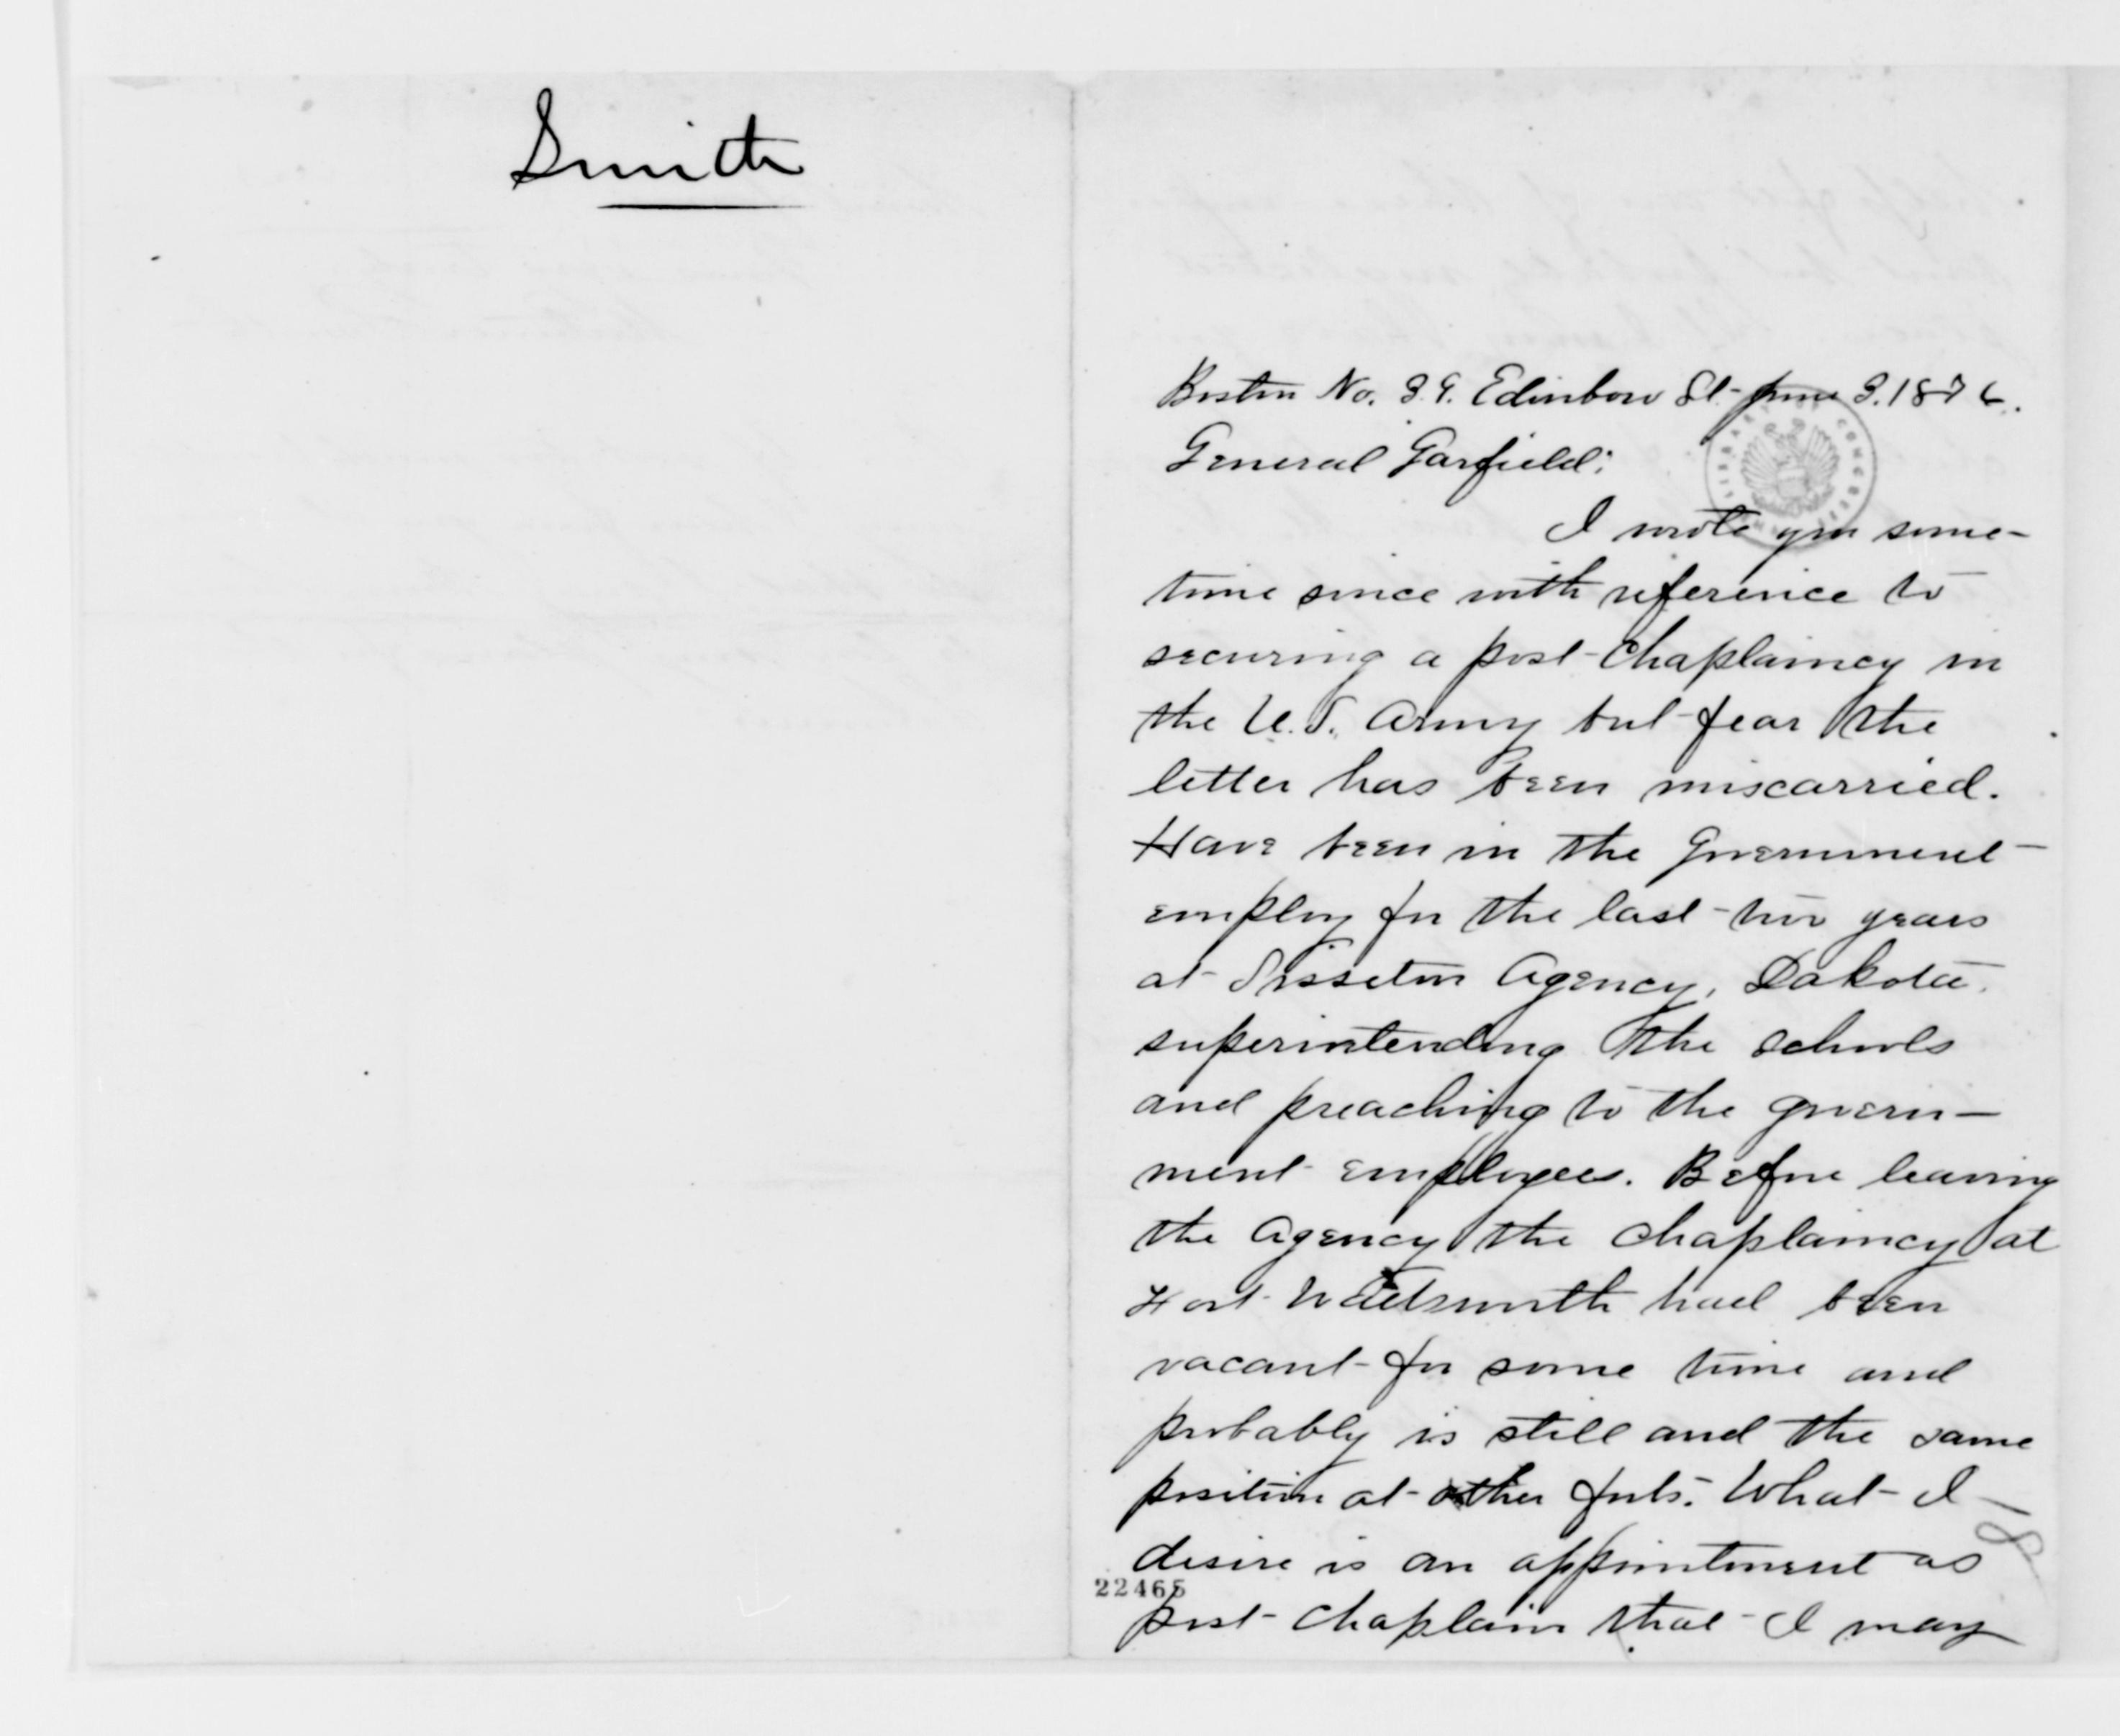 Smith
Boston No. 39. Edinboro St. June 3. 1876.
General Garfield:
I wrote you some-
time since with reference to
securing a post-chaplaincy in
the U.S. Army but fear the
letter has been miscarried.
Have been in the Government
employ for the last two years
at Sisseton Agency, Dakota,
superintending the schools
and preaching to the govern-
ment employees. Before leaving
the Agency the chaplaincy at
Fort Wadsworth had been
vacant for some time and
probably is still and the same
position at other forts. What I
desire is an appointment as
22465
post-chaplain that I may